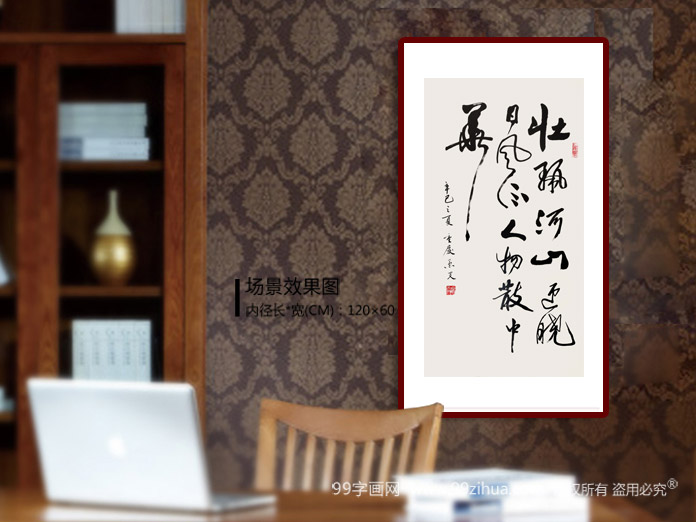 壮丽河山迎晓
日风流人物散中
华
辛巳之夏 重庆
场景效果图
内径长*宽(CM)：120×60
99字画网 www.99zihua. 权所有 盗用必究®